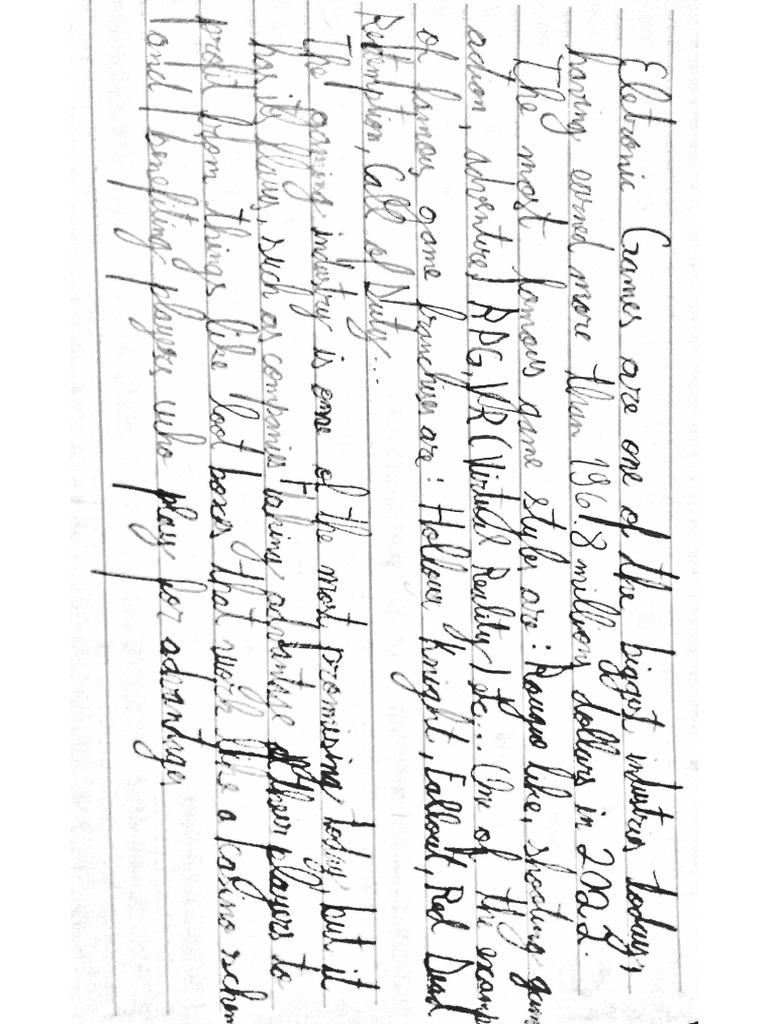 Eletronic Games are one of the biggest industries today,
having earned more than 196.8 million dollars in 2022.
The most famous game styles are: Rougue like, shooting gam
action, adventure, RPG, VR (Virtual Reality) etc... One of the examp
of famous game franchises are: Hollow Knight, Fallout, Red Dead
Redemption, Call of Duty...
The gaming industry is one of the most promissing today, but it
has it flaws, such as companies taking advantage of their players to
profit from things like loot boxes that work like a casino schem
and benefiting players who play for advantage,